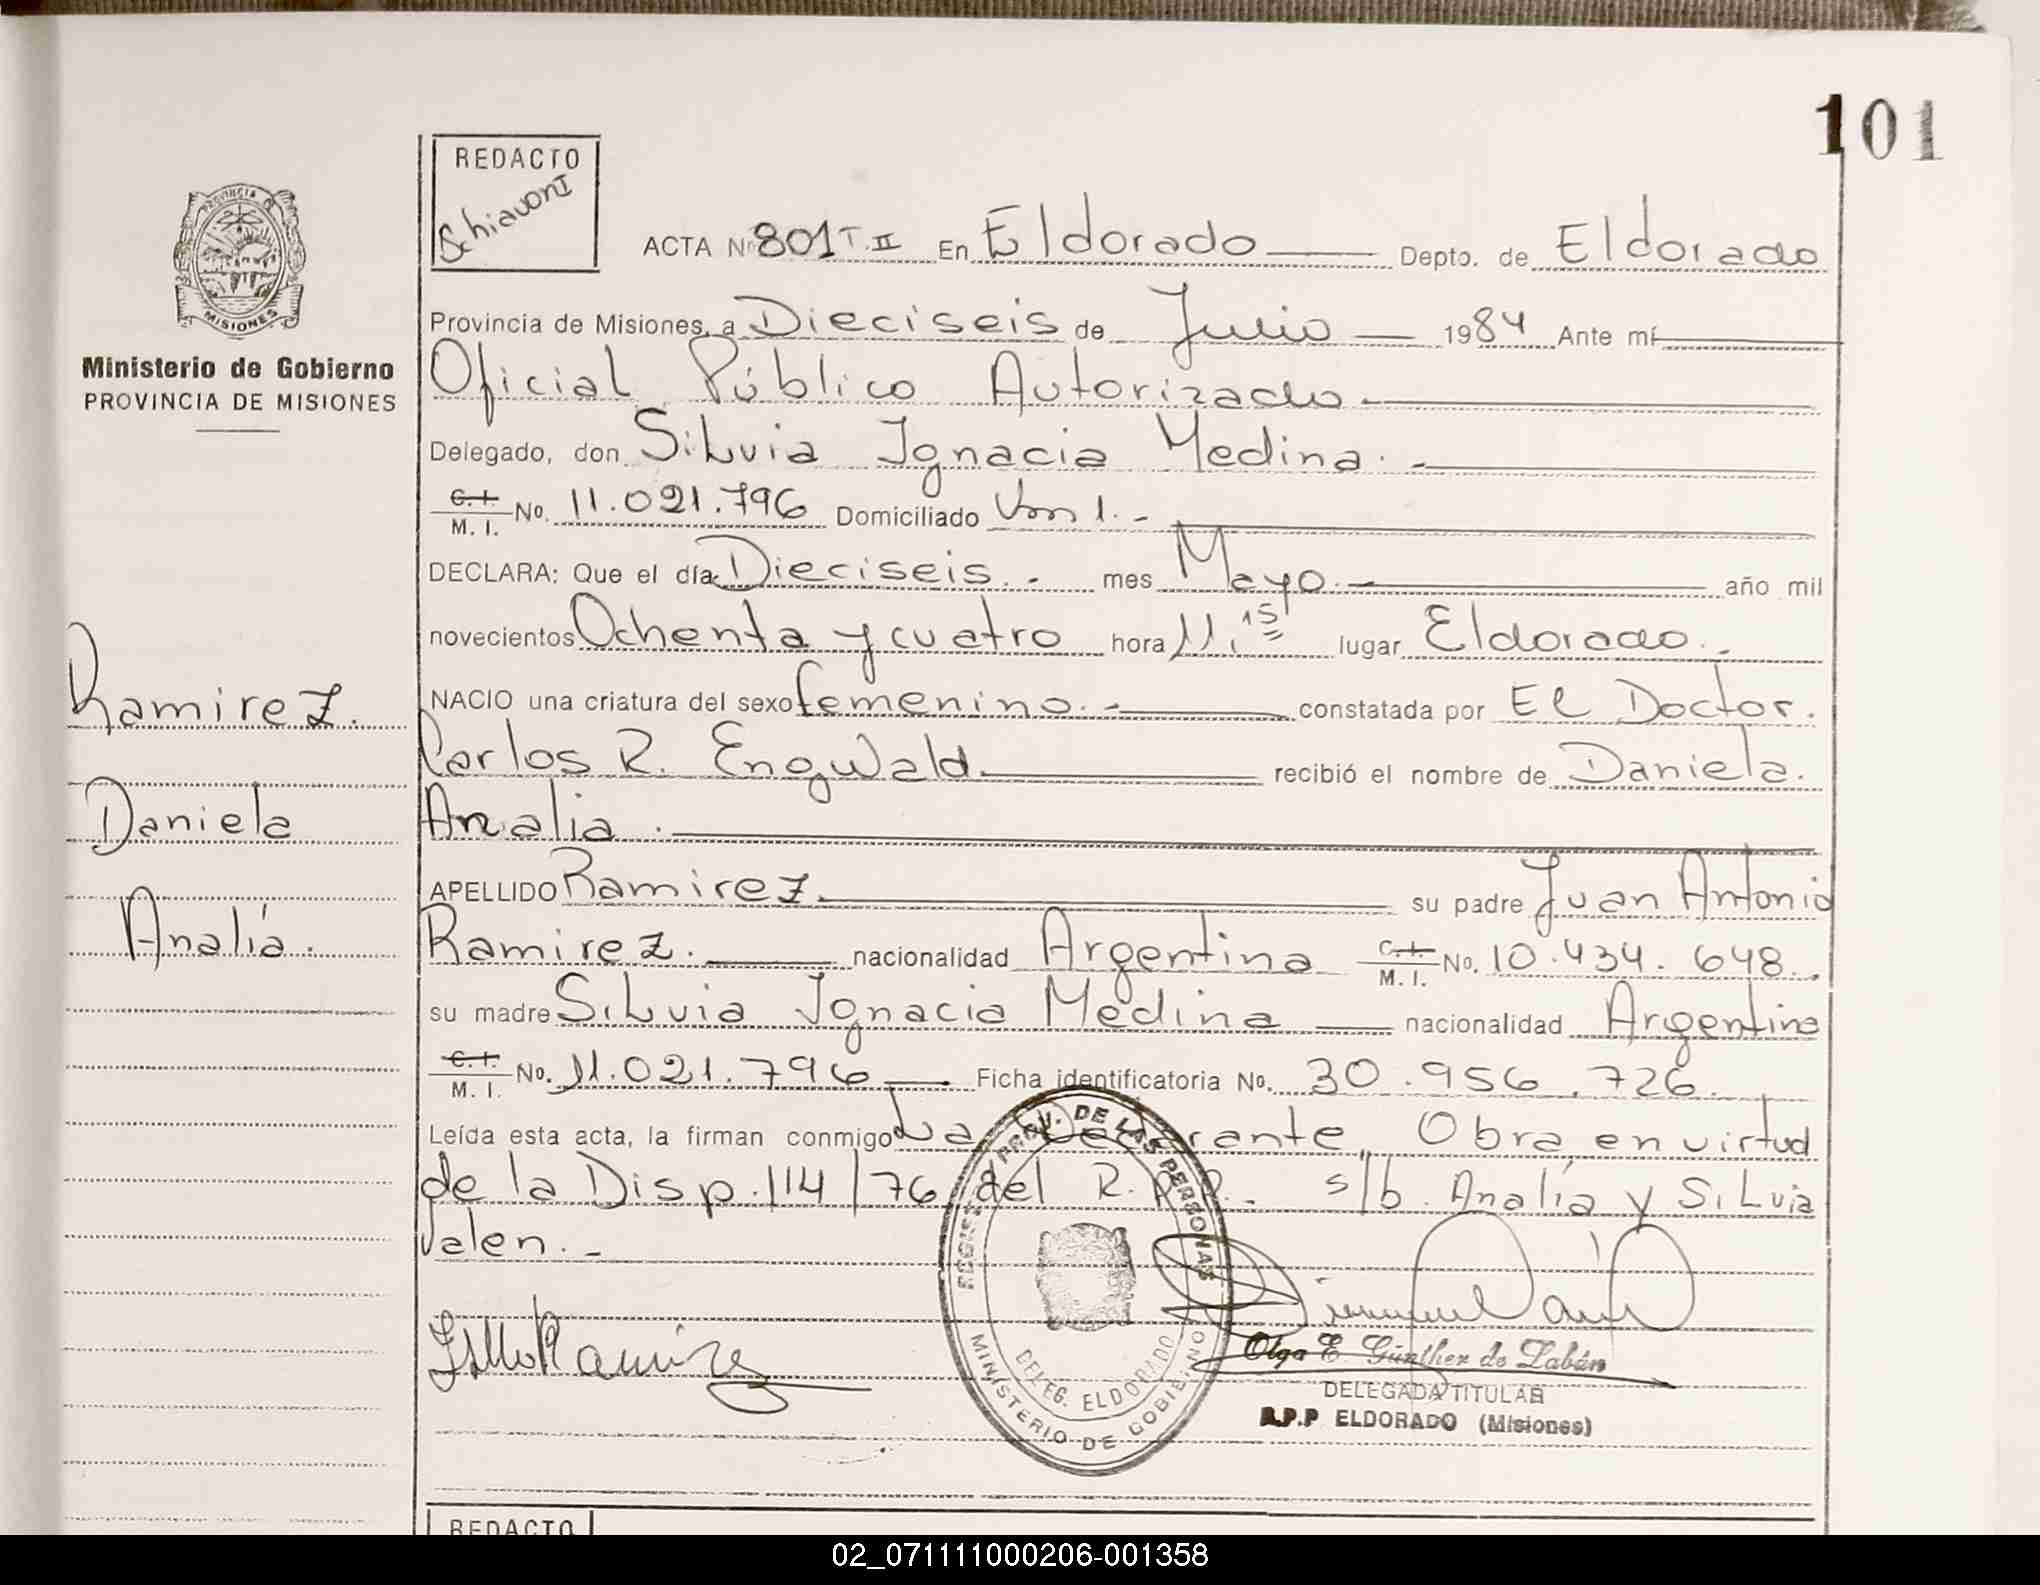 101
REDACTO
Schiavoni
PROVINCIA DE
MISIONES
Ministerio de Gobierno
PROVINCIA DE MISIONES
ACTA Nº 801 T. II En Eldorado Depto. de Eldorado
Provincia de Misiones, a Dieciseis de Julio 1984 Ante mí
Oficial Público Autorizado.
Delegado, don Silvia Ignacia Medina.
C. I. M. I. No. 11.021.796 Domiciliado Km 1.
DECLARA: Que el día Dieciseis. mes Mayo. año mil
novecientos Ochenta y cuatro hora 11,15 lugar Eldorado.
NACIO una criatura del sexo femenino. constatada por El Doctor.
Carlos R. Engwald recibió el nombre de Daniela.
Analia.
APELLIDO Ramirez. su padre Juan Antonio
Ramirez. nacionalidad Argentina C. I. M. I. No. 10.434.648.
su madre Silvia Ignacia Medina nacionalidad Argentina
C. I. M. I. No. 11.021.796 Ficha identificatoria No. 30.956.726
Leída esta acta, la firman conmigo La Declarante Obra en virtud
de la Disp. 114/76 del R.P.P. s/b. Analía y Silvia
Valen.
Ramirez.
Daniela
Analía.
Ramirez
PROV. DE LAS PERSONAS
DELEG. ELDORADO
MINISTERIO DE GOBIERNO
Olga E. Günther de Zabán
DELEGADA TITULAR
R.P.P ELDORADO (Misiones)
REDACTO
02_071111000206-001358